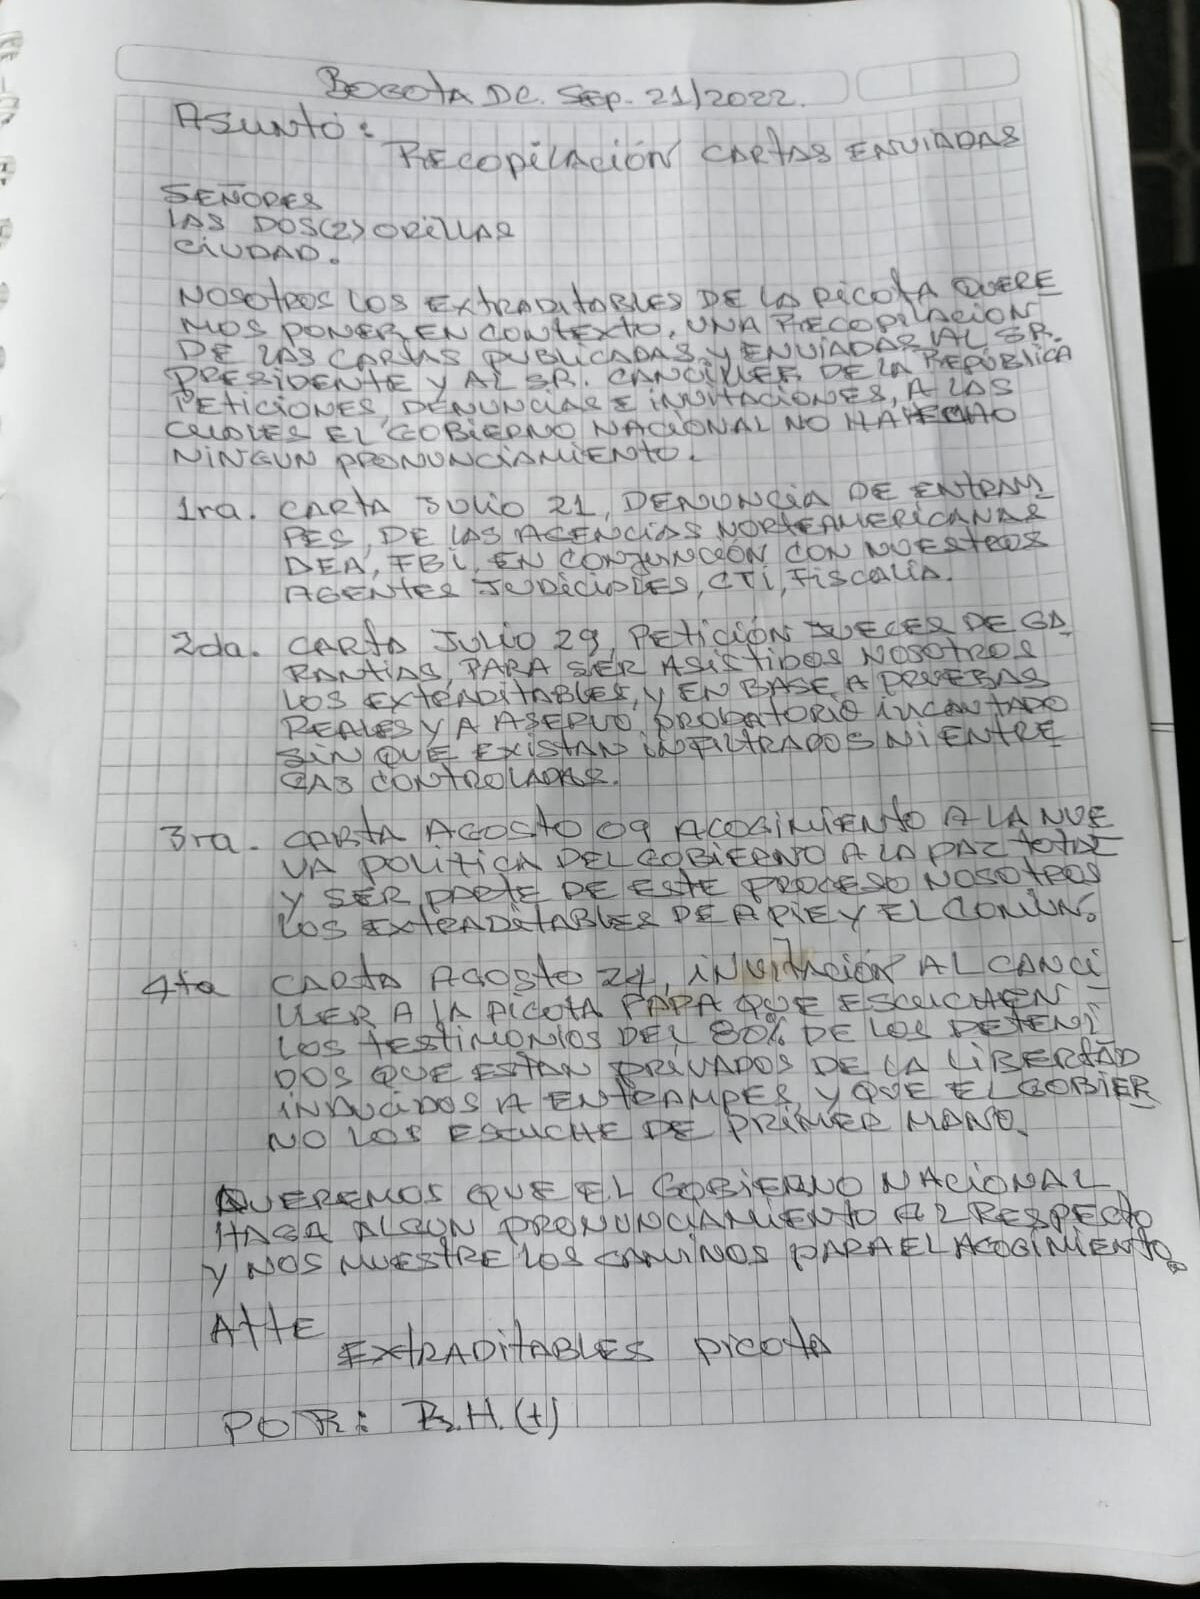 BOGOTA DC. SEP. 21/2022.
ASUNTO:
RECOPILACIÓN CARTAS ENVIADAS
SEÑORES
LAS DOS(2) ORILLAS
CIUDAD.
NOSOTROS LOS EXTRADITABLES DE LA PICOTA QUERE
MOS PONER EN CONTEXTO, UNA RECOPILACION
DE LAS CARTAS PUBLICADAS Y ENVIADAS AL SR.
PRESIDENTE Y AL SR. CANCILLER DE LA REPÚBLICA
PETICIONES, DENUNCIAS E INVITACIONES, A LAS
CUALES EL GOBIERNO NACIONAL NO HA HECHO
NINGUN PRONUNCIAMIENTO.
1ra. CARTA JULIO 21, DENUNCIA DE ENTRAM_
PES, DE LAS AGENCIAS NORTEAMERICANAS
DEA, FBI, EN CONJUNCIÓN CON NUESTROS
AGENTES JUDICIALES, CTI, FISCALIA.
2da. CARTA JULIO 29, PETICIÓN JUECES DE GA_
RANTIAS, PARA SER ASISTIDOS NOSOTROS
LOS EXTRADITABLES, Y EN BASE A PRUEBAS
REALES Y A ASERVO PROBATORIO INCANTADO
SIN QUE EXISTAN INFILTRADOS NI ENTRE
GAS CONTROLADAS.
3ra. CARTA AGOSTO 09 ACOGIMIENTO A LA NUE
VA POLITICA DEL GOBIERNO A LA PAZ TOTAL
Y SER PARTE DE ESTE PROCESO NOSOTROS
LOS EXTRADITABLES DE A PIE Y EL COMUN.
4ta CARTA AGOSTO 24, INVITACIÓN AL CANCI_
LLER A LA PICOTA PARA QUE ESCUCHEN
LOS TESTIMONIOS DEL 80% DE LOS DETENI
DOS QUE ESTAN PRIVADOS DE LA LIBERTAD
INDUCIDOS A ENTRAMPES, Y QUE EL GOBIER_
NO LOS ESCUCHE DE PRIMER MANO.
QUEREMOS QUE EL GOBIERNO NACIONAL
HAGA ALGUN PRONUNCIAMIENTO AL RESPECTO
Y NOS MUESTRE LOS CAMINOS PARA EL ACOGIMIENTO.
ATTE
EXTRADITABLES PICOTA
POR: R.H.(+)